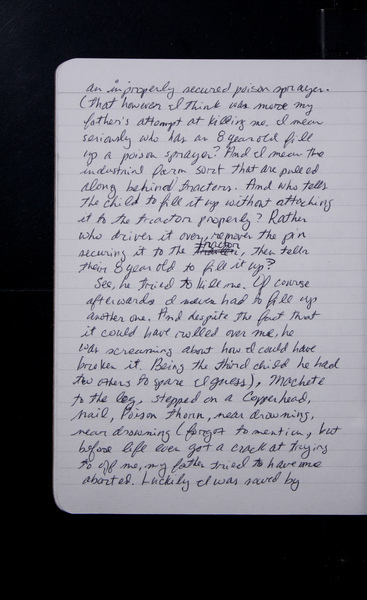 an improperly secured poison sprayer.
(That however I think was more my
father's attempt at killing me. I mean
seriously who has an 8 year old fill
up a poison sprayer? And I mean the
industrial farm sort that are pulled
along behind tractors. And who tells
the child to fill it up without attaching
it to the tractor properly? Rather
who drives it over, remover the pin
securing it to the tractor, then tells
their 8 year old to fill it up?
See, he tried to kill me. Of course
afterwards I never had to fill up
another one. And despite the fact that
it could have rolled over me, he
was screaming about how I could have
broken it. Being the third child he had
two others to spare I guess), Machete
to the leg, stepped on a Copperhead,
nail, Poison thorn, near drowning,
near drowning (forgot to mention, but
before life ever got a crack at trying
to off me, my father tried to have me
aborted. Luckily I was saved by